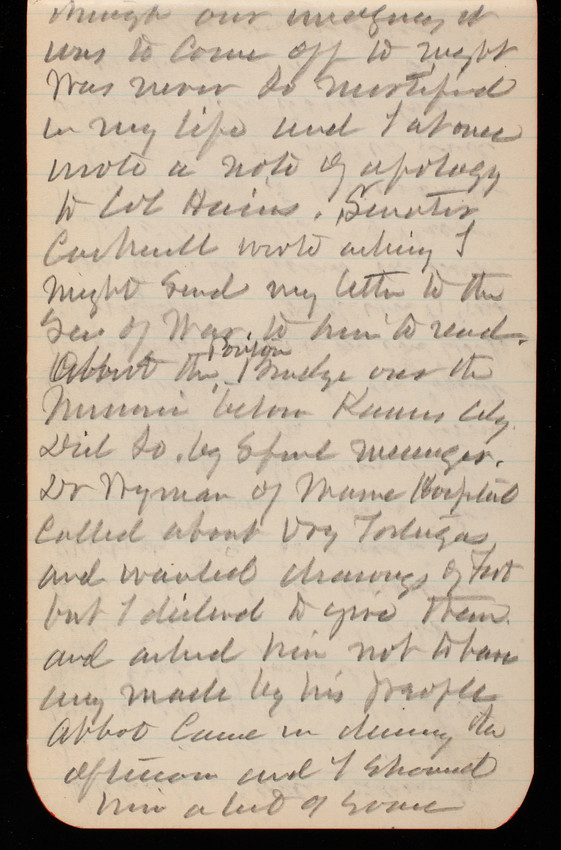 through our
was to come off to night
Was never so mortified
in my life and I at once
wrote a note of apology
to Col Hains. Senator
Cockrell wrote asking I
might send my letter to the
Sec of War, to him to read.
About the Ponton Bridge over the
Missouri below Kansas City.
Did so, by messenger.
Dr Wyman of Marine Hospital
called about Dry Tortugas
and wanted drawings of Fort
but I declined to give them
and asked him not to have
any made by his people
Abbot came in during the
afternoon and I showed
him a list of some